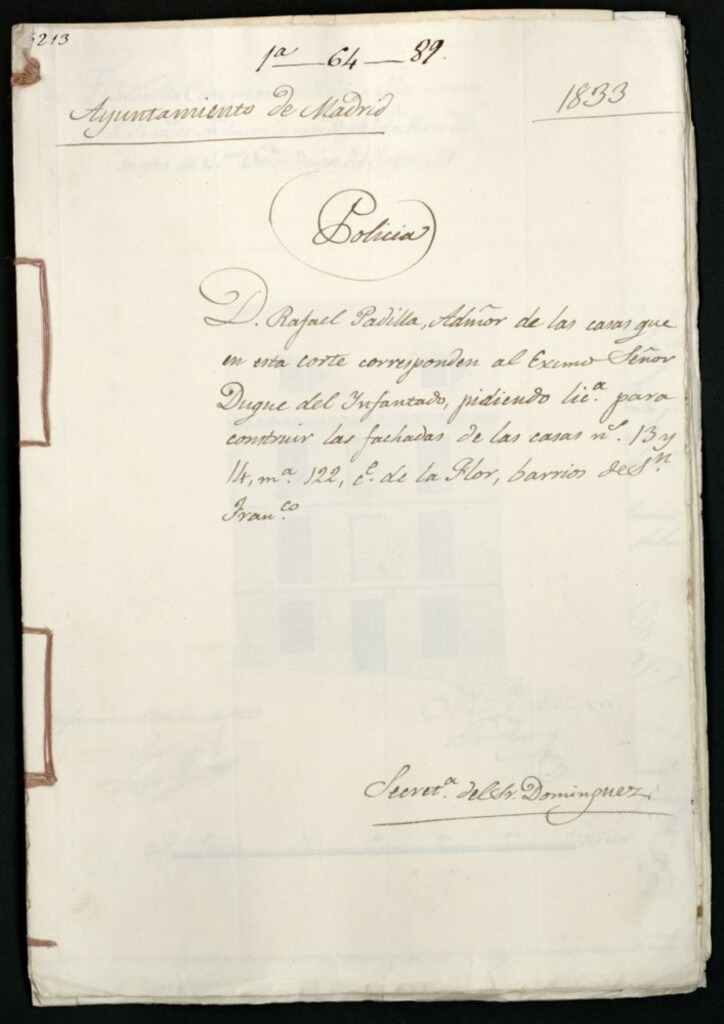 213
1ª — 64 — 89.
Ayuntamiento de Madrid
1833
Policia
D. Rafael Padilla, Admor̃ de las casas que
en esta corte corresponden al Excmo Señor
Duque del Infantado, pidiendo lic.ª para
construir las fachadas de las casas n.ˢ 13 y
14, m.ª 122, c.ᵉ de la Flor, barrios de S.ⁿ
Fran.ᶜᵒ
Secret.ª del Sr. Dominguez